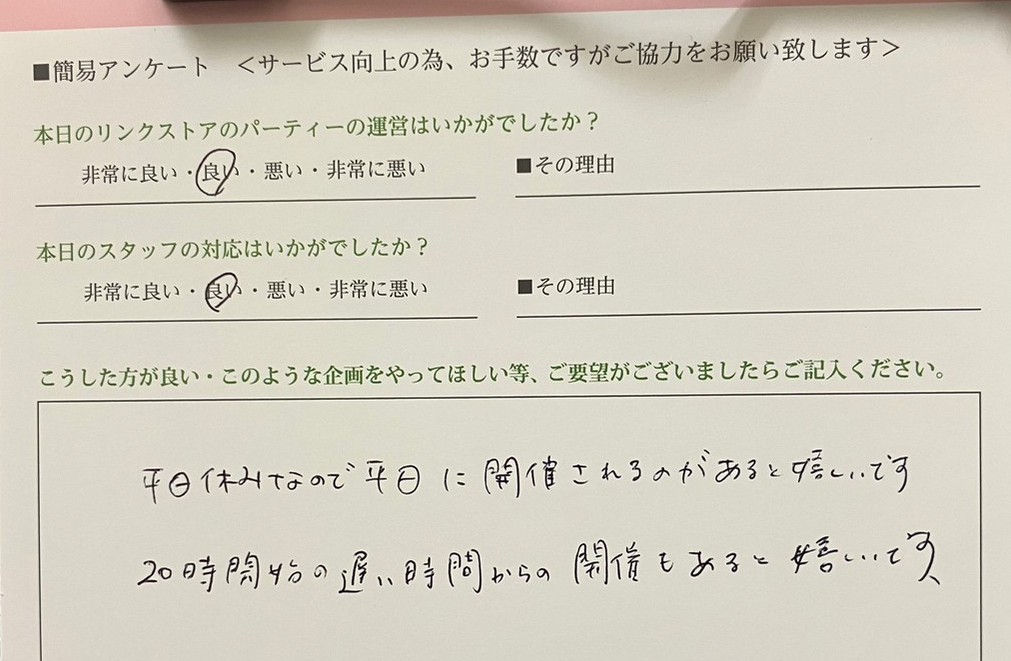 ■簡易アンケート ＜サービス向上の為、お手数ですがご協力をお願い致します＞
本日のリンクストアのパーティーの運営はいかがでしたか？
非常に良い・良い・悪い・非常に悪い ■その理由
本日のスタッフの対応はいかがでしたか？
非常に良い・良い・悪い・非常に悪い ■その理由
こうした方が良い・このような企画をやってほしい等、ご要望がございましたらご記入ください。
平日休みなので平日に開催されるのがあると嬉しいです
20時開始の遅い時間からの開催もあると嬉しいです